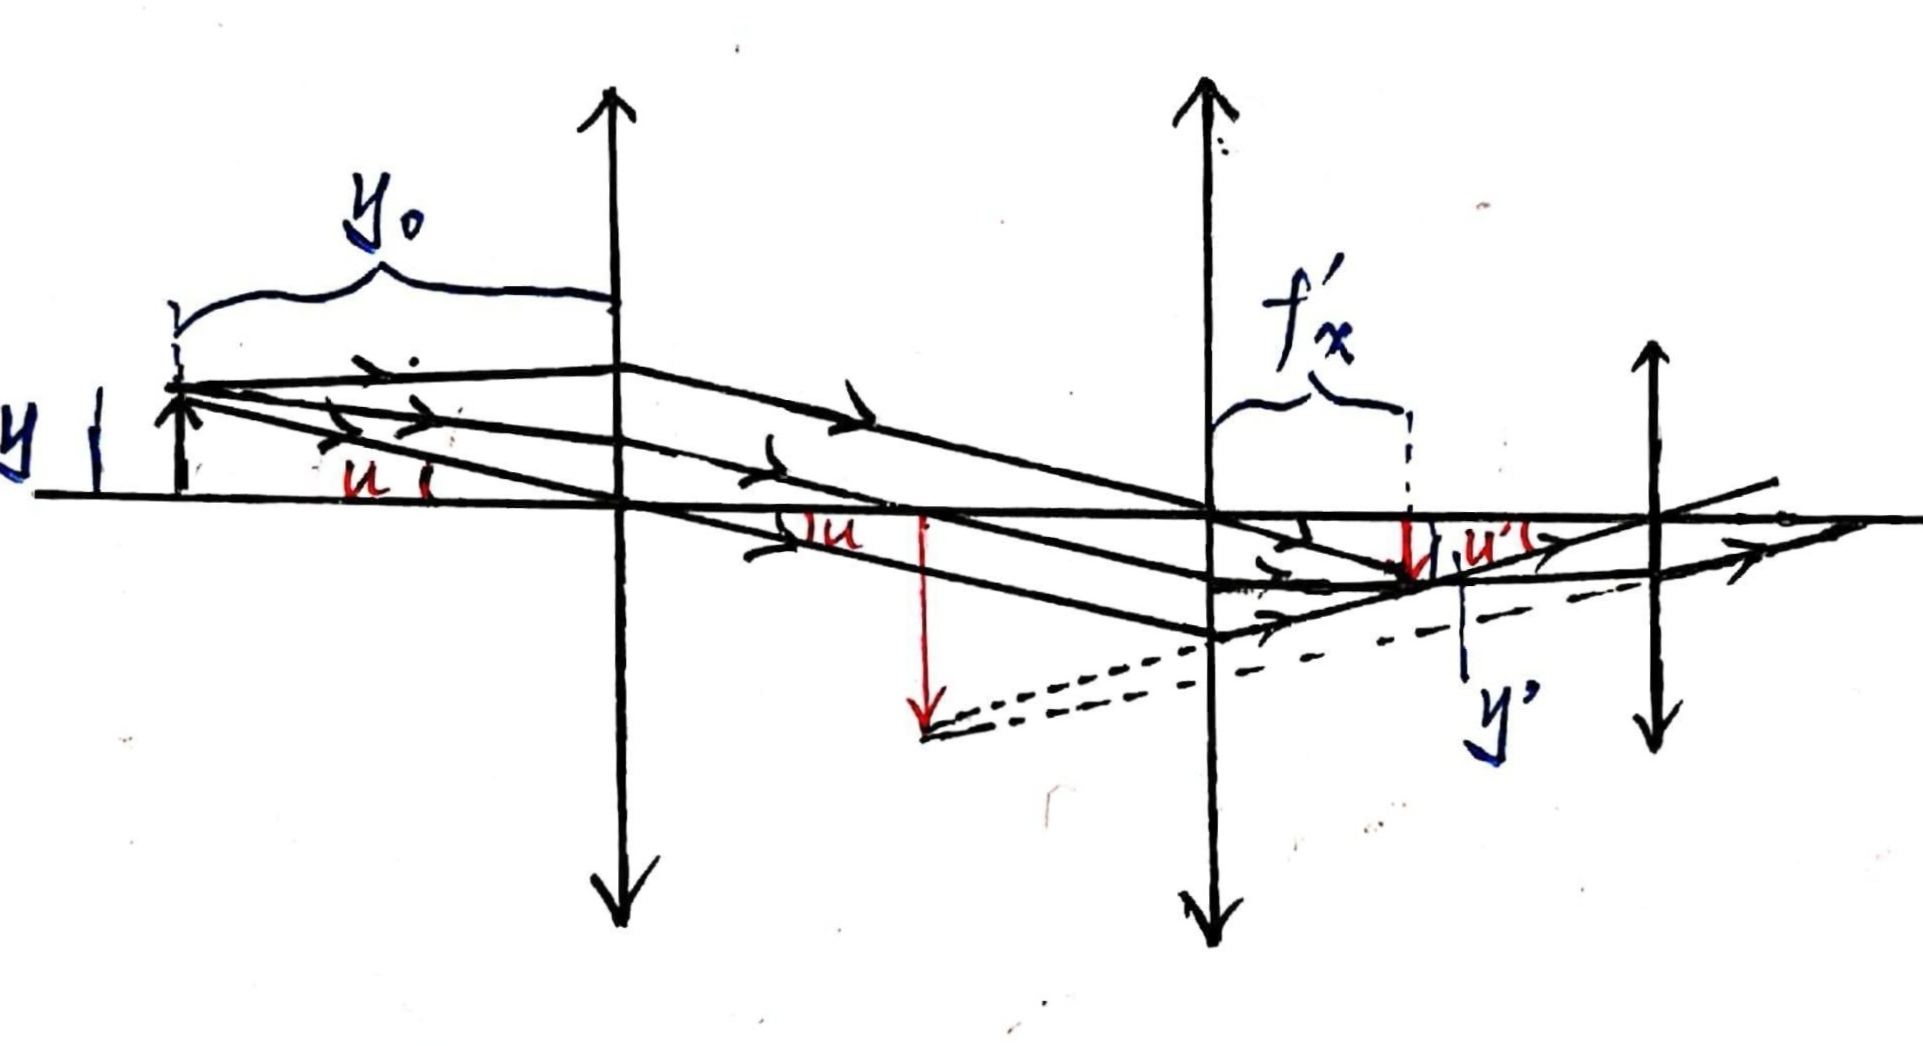 y₀
f'ₓ
y
u
u
u'
y'